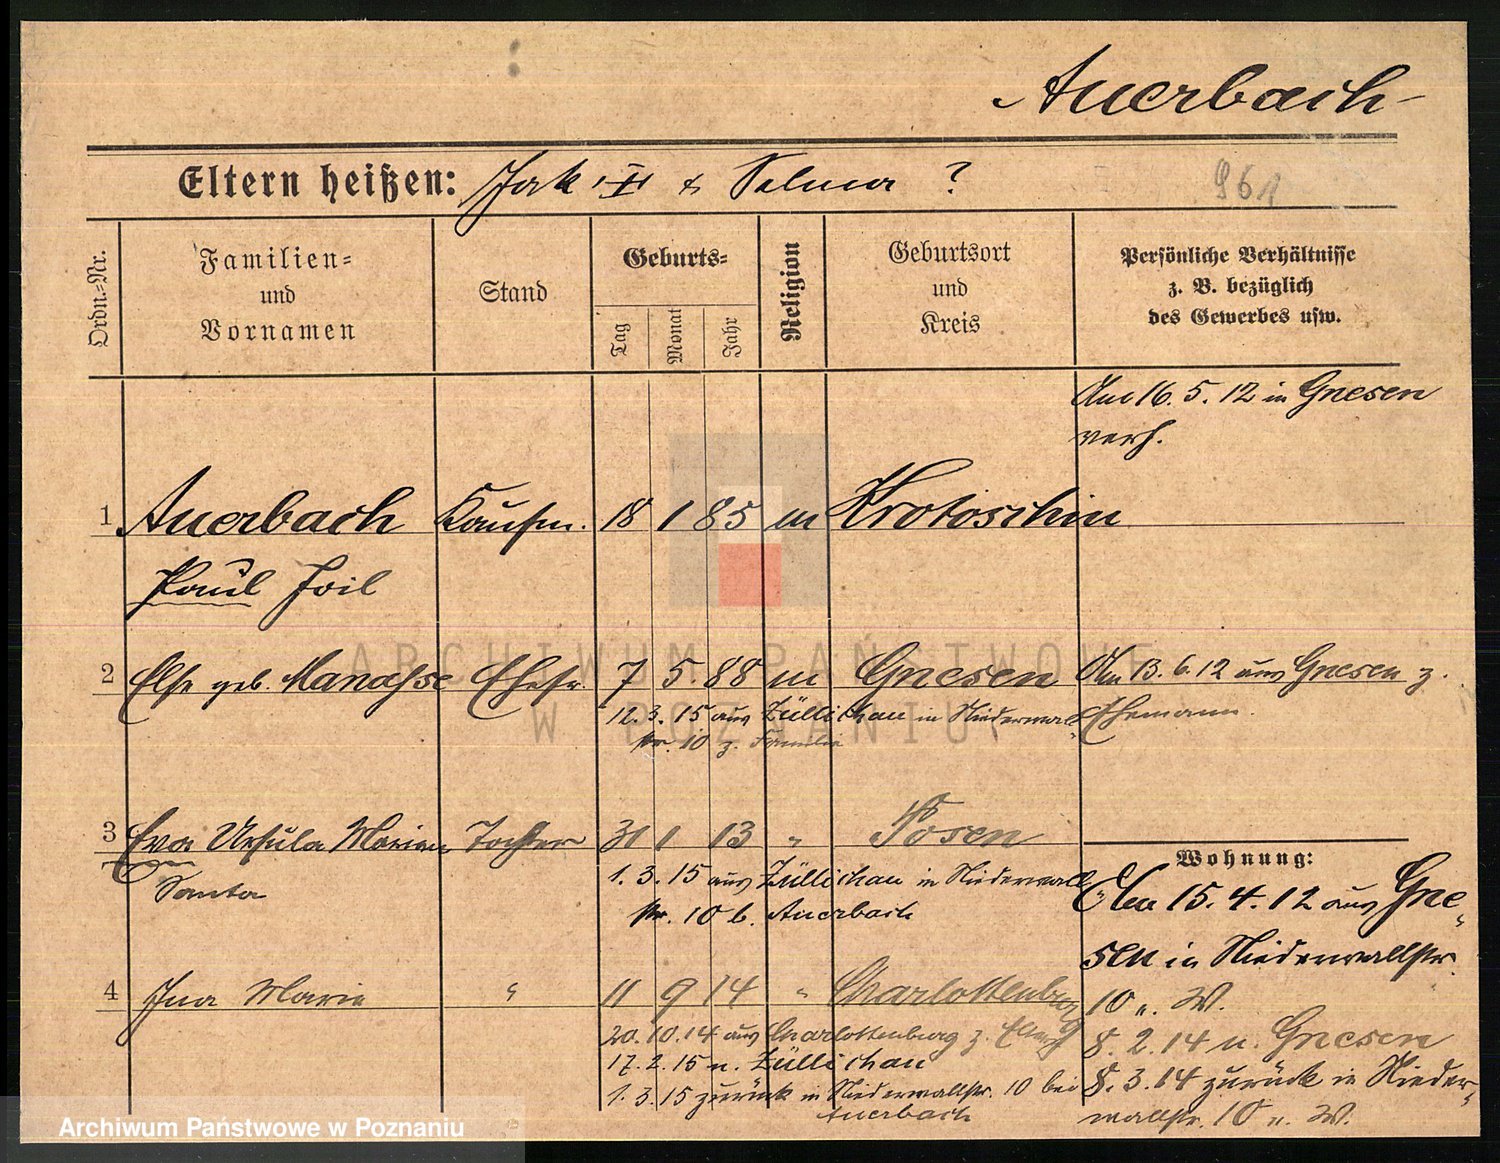 Auerbach
Eltern heißen: Jak. II & Selma ?
961
Ordn.=Nr.
Familien=
und
Vornamen
Stand
Geburts=
Tag
Monat
Jahr
Religion
Geburtsort
und
Kreis
Persönliche Verhältnisse
z. B. bezüglich
des Gewerbes usw.
Am 16. 5. 12 in Gnesen
verh.
1 Auerbach Kaufm. 18 1 85 m Krotoschin
Paul Joil
ARCHIWUM PAŃSTWOWE
W POZNANIU
2 Else geb. Manasse Ehefr. 7 5 88 m Gnesen Am 13. 6. 12 aus Gnesen z.
Ehemann.
12. 3. 15 aus Züllichau in Niederwall=
str. 10 z. Familie
3 Eva Ursula Marian Tochter 31 1 13 " Posen
1. 3. 15 aus Züllichau in Niederwall=
str. 10 b. Auerbach
Wohnung:
Am 15. 4. 12 aus Gne=
sen in Niederwallstr.
10 u. W.
8. 2. 14 n. Gnesen
8. 3. 14 zurück in Nieder=
wallstr. 10 u. W.
4 Ina Marie " 11 9 14 " Charlottenburg
20. 10. 14 aus Charlottenburg z. Eltern
17. 2. 15 n. Züllichau
1. 3. 15 zurück in Niederwallstr. 10 bei
Auerbach
Archiwum Państwowe w Poznaniu